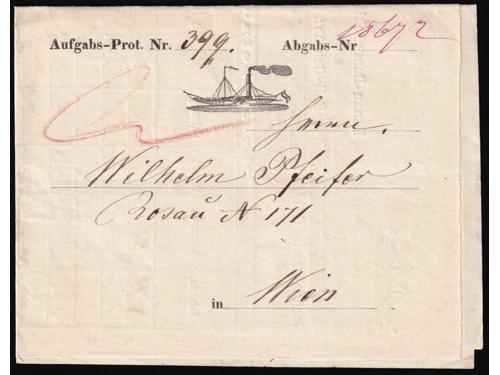 Aufgabs-Prot. Nr. 399. Abgabs-Nr 18672
Herrn.
Wilhelm Pfeifer
Rosau N 171
in Wien